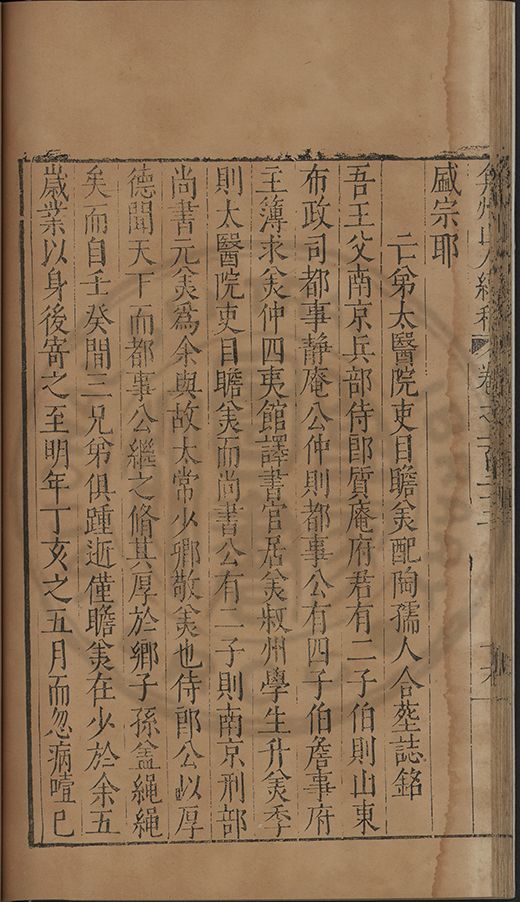 弇州山人續稿 卷之一百
盛宗耶
亡弟太醫院吏目瞻羙配陶孺人合塟誌銘
吾王父南京兵部侍郎質庵府君有二子伯則山東
布政司都事靜庵公仲則都事公有四子伯詹事府
主簿求羙仲四夷館譯書官居羙叔州學生升羙季
則太醫院吏目瞻羙而尚書公有二子則南京刑部
尚書元羙爲余與故太常少卿敬羙也侍郎公以厚
德聞天下而都事公繼之脩其厚於鄉子孫益繩繩
矣而自壬癸間三兄弟俱踵逝僅瞻羙在少於余五
歲業以身後寄之至明年丁亥之五月而忽病噎巳